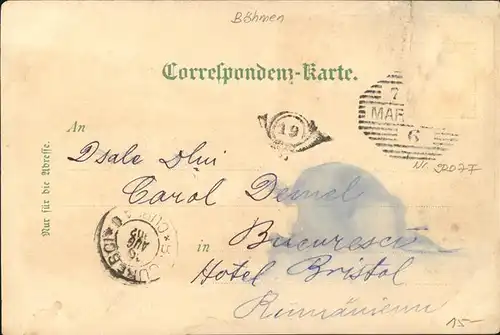 Böhmen
Correspondenz-Karte.
7
MAR
6
19
An
Nr. 5207F
Dsale Dlui
Carol Demel
Nur für die Adresse.
in Bucuresci
Hôtel Bristol
Rumänienn
15-